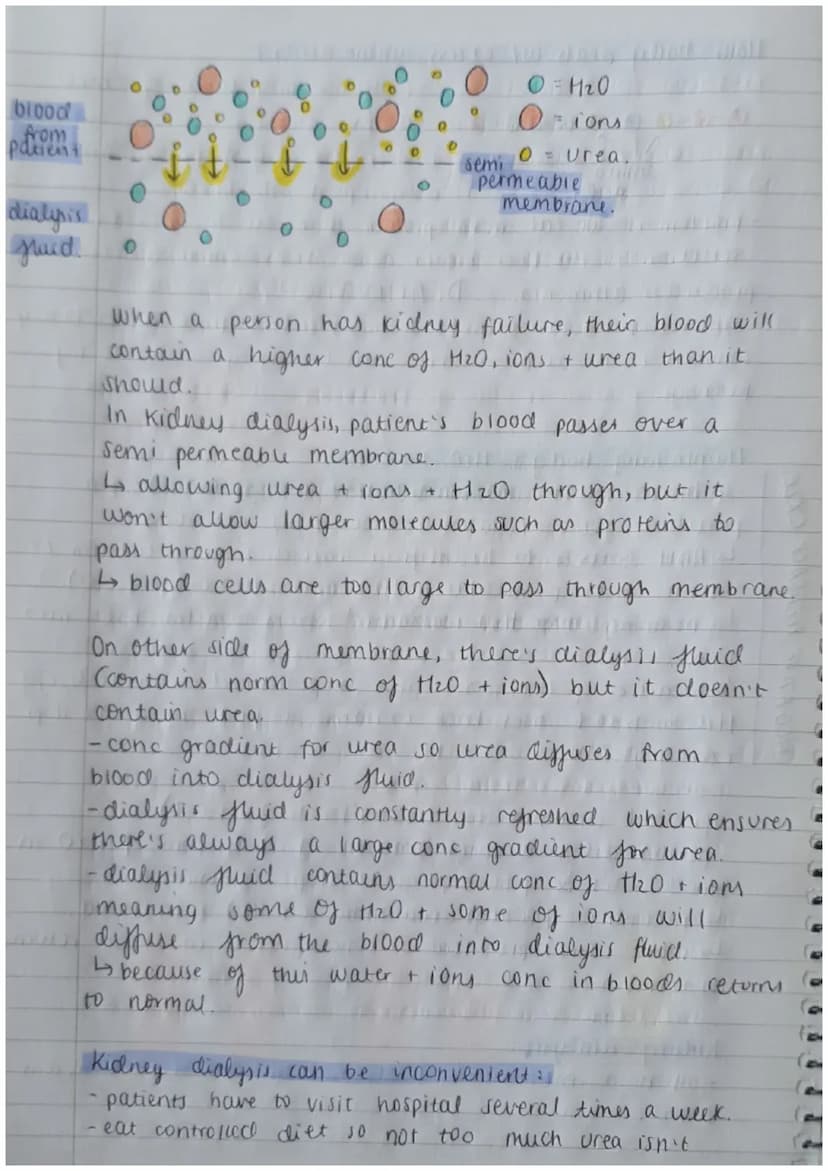 blood
from
patient
dialysis
fluid.
= H2O
= ions
= urea.
semi
permeable
membrane.
When a person has kidney failure, their blood will
contain a higher conc of H2O, ions + urea than it
should.
In kidney dialysis, patient's blood passes over a
semi permeable membrane.
↳ allowing urea + ions + H2O through, but it
won't allow larger molecules such as proteins to
pass through.
↳ blood cells are too large to pass through membrane.
On other side of membrane, there's dialysis fluid
(contains norm conc of H2O + ions) but it doesn't
contain urea.
- conc gradient for urea so urea diffuses from
blood into dialysis fluid.
- dialysis fluid is constantly refreshed which ensures
there's always a large conc gradient for urea.
- dialysis fluid contains normal conc of H2O + ions
meaning some of H2O + some of ions will
diffuse from the blood into dialysis fluid.
↳ because of this water + ions conc in bloods returns
to normal.
Kidney dialysis can be inconvenient:
- patients have to visit hospital several times a week.
- eat controlled diet so not too much urea isn't